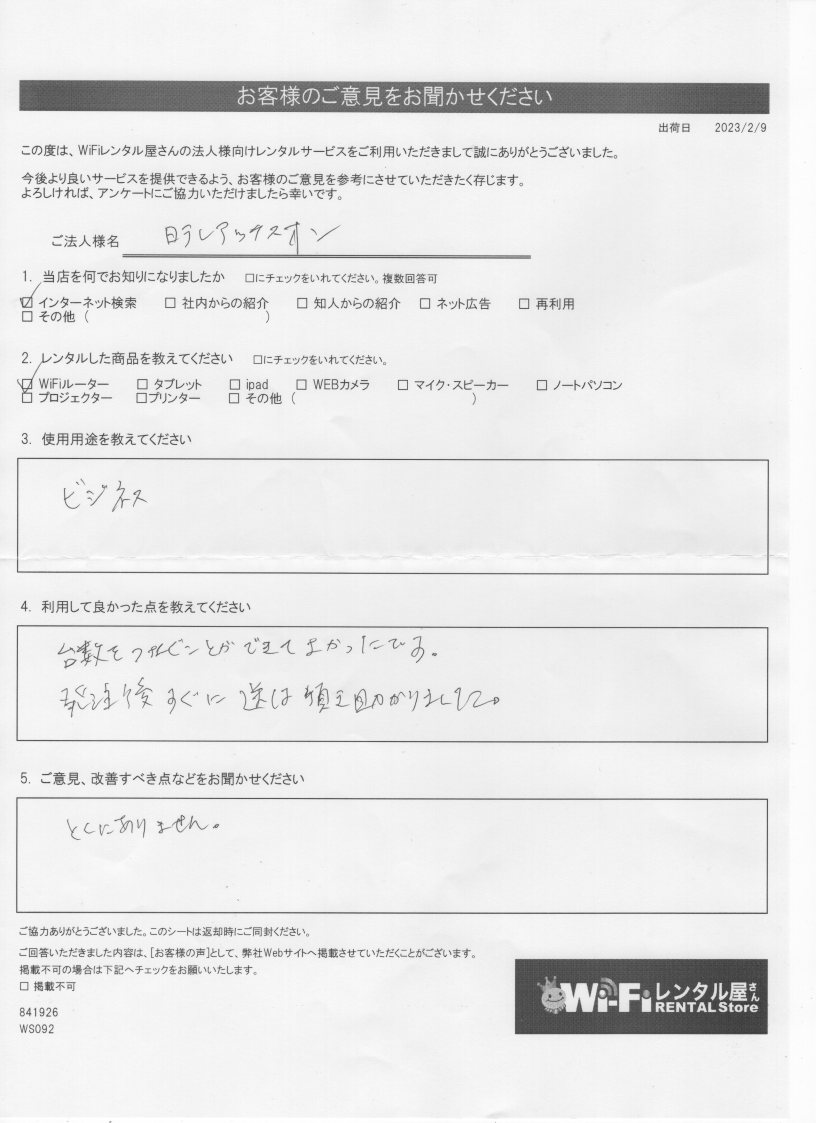 お客様のご意見をお聞かせください
出荷日 2023/2/9
この度は、WiFiレンタル屋さんの法人様向けレンタルサービスをご利用いただきまして誠にありがとうございました。
今後より良いサービスを提供できるよう、お客様のご意見を参考にさせていただきたく存じます。
よろしければ、アンケートにご協力いただけましたら幸いです。
ご法人様名 日テレアックスオン
1. 当店を何でお知りになりましたか □にチェックをいれてください。複数回答可
☑ インターネット検索 □ 社内からの紹介 □ 知人からの紹介 □ ネット広告 □ 再利用
□ その他（ ）
2. レンタルした商品を教えてください □にチェックをいれてください。
☑ WiFiルーター □ タブレット □ ipad □ WEBカメラ □ マイク・スピーカー □ ノートパソコン
□ プロジェクター □プリンター □ その他（ ）
3. 使用用途を教えてください
ビジネス
4. 利用して良かった点を教えてください
台数を ことができてよかったです。
発注後すぐに送 助かりました。
5. ご意見、改善すべき点などをお聞かせください
とくにありません。
ご協力ありがとうございました。このシートは返却時にご同封ください。
ご回答いただきました内容は、[お客様の声]として、弊社Webサイトへ掲載させていただくことがございます。
掲載不可の場合は下記へチェックをお願いいたします。
□ 掲載不可
841926
WS092
Wi-Fiレンタル屋さん
RENTAL Store